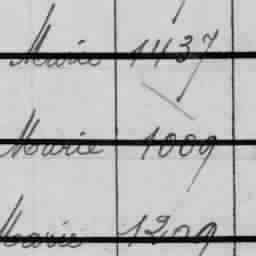 Marie 1437
Marie 1009
Marie 1209